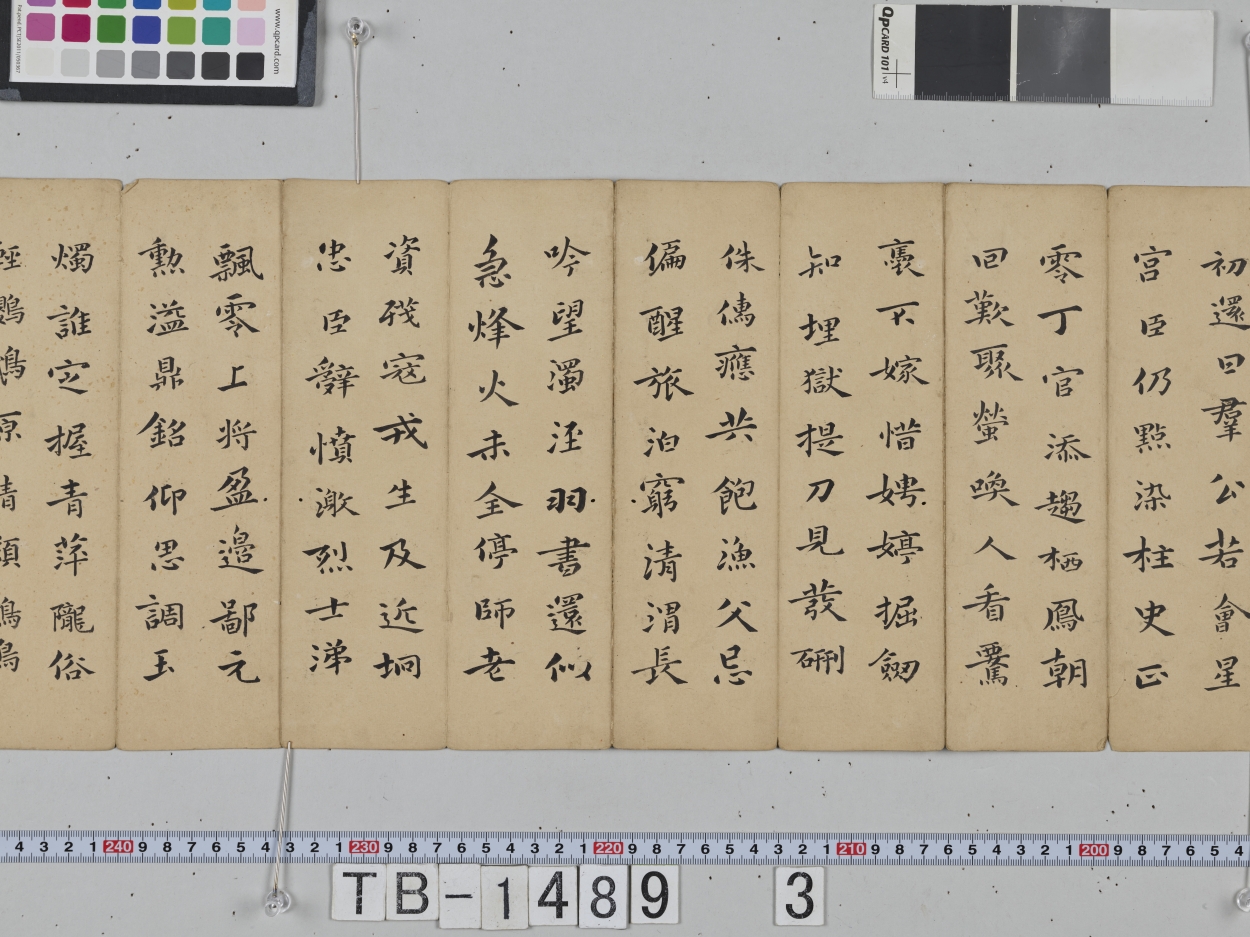 初還日羣公若會星
宮臣仍點染柱史正
零丁官添趨栖鳳朝
回歎聚螢喚人看騕
褭不嫁惜娉婷掘劒
知埋獄提刀見發硎
侏儒應共飽漁父忌
偏醒旅泊窮清渭長
吟望濁涇羽書還似
急烽火未全停師老
資殘寇戎生及近坰
忠臣辭憤激烈士涕
飄零上將盈邊鄙元
勲溢鼎銘仰思調玉
燭誰定握青萍隴俗
輕鸚鵡原情類鶺鴒
www.qpcard.com
QPCARD 101 v4
4 3 2 1 240 9 8 7 6 5 4 3 2 1 230 9 8 7 6 5 4 3 2 1 220 9 8 7 6 5 4 3 2 1 210 9 8 7 6 5 4 3 2 1 200 9 8 7 6 5 4
TB-1489 3